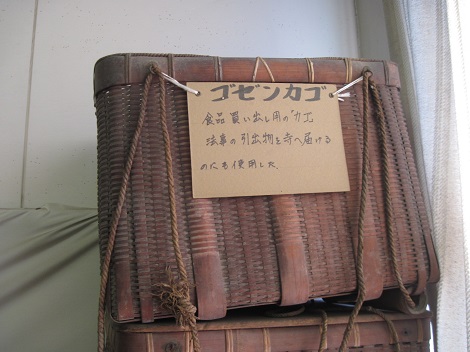 ゴゼンカゴ
食品買い出し用の"カゴ"
法事の引出物を寺へ届ける
のにも使用した、